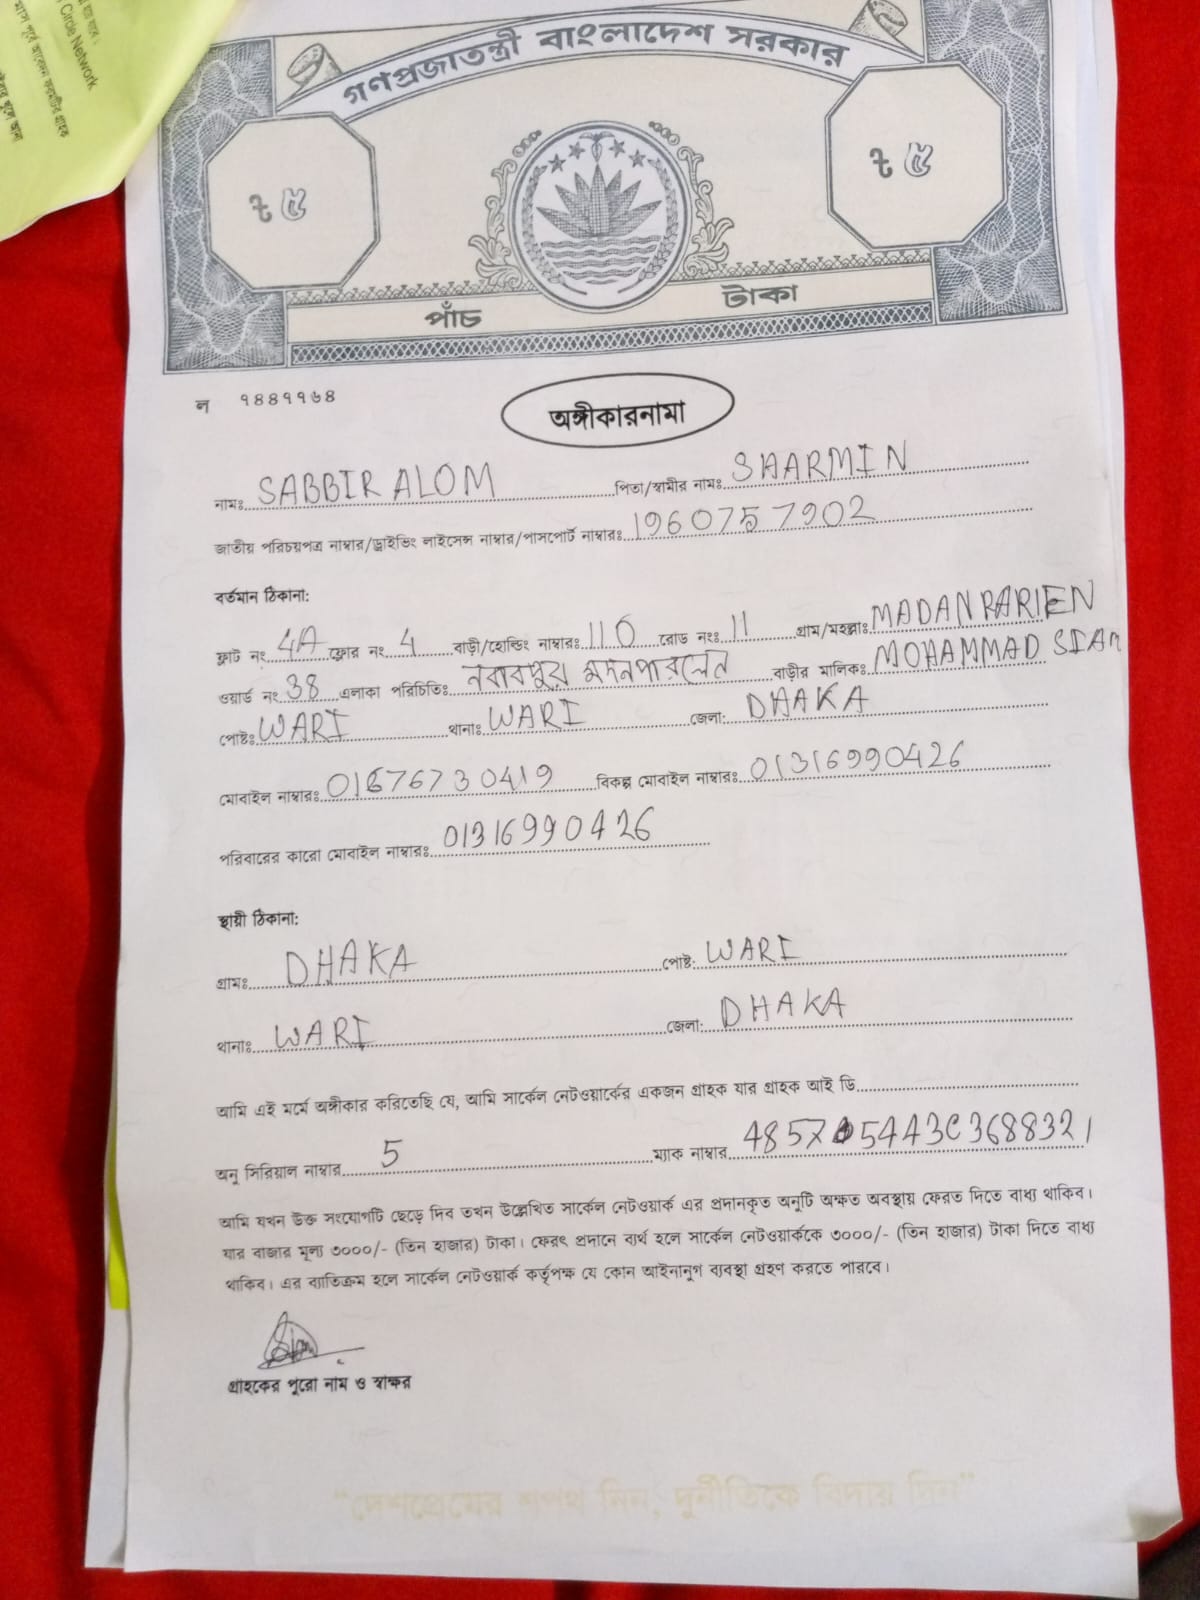 Circle Network
গণপ্রজাতন্ত্রী বাংলাদেশ সরকার
৳ ৫ ৳ ৫
পাঁচ টাকা
ল ৭৪৪৭৭৬৪
অঙ্গীকারনামা
নামঃ SABBIR ALOM পিতা/স্বামীর নামঃ SHARMIN
জাতীয় পরিচয়পত্র নাম্বার/ড্রাইভিং লাইসেন্স নাম্বার/পাসপোর্ট নাম্বারঃ 1960757902
বর্তমান ঠিকানা:
ফ্লাট নং 4A ফ্লোর নং 4 বাড়ী/হোল্ডিং নাম্বারঃ 110 রোড নংঃ 11 গ্রাম/মহল্লাঃ MADAN PARIEN
ওয়ার্ড নং 38 এলাকা পরিচিতিঃ নবাবপুর মদনপারলেন বাড়ীর মালিকঃ MOHAMMAD SIAM
পোষ্টঃ WARI থানাঃ WARI জেলা: DHAKA
মোবাইল নাম্বারঃ 01676730419 বিকল্প মোবাইল নাম্বারঃ 01316990426
পরিবারের কারো মোবাইল নাম্বারঃ 01316990426
স্থায়ী ঠিকানা:
গ্রামঃ DHAKA পোষ্ট: WARI
থানাঃ WARI জেলা: DHAKA
আমি এই মর্মে অঙ্গীকার করিতেছি যে, আমি সার্কেল নেটওয়ার্কের একজন গ্রাহক যার গ্রাহক আই ডি
অনু সিরিয়াল নাম্বার 5 ম্যাক নাম্বার
আমি যখন উক্ত সংযোগটি ছেড়ে দিব তখন উল্লেখিত সার্কেল নেটওয়ার্ক এর প্রদানকৃত অনুটি অক্ষত অবস্থায় ফেরত দিতে বাধ্য থাকিব।
যার বাজার মূল্য ৩০০০/- (তিন হাজার) টাকা। ফেরৎ প্রদানে ব্যর্থ হলে সার্কেল নেটওয়ার্ককে ৩০০০/- (তিন হাজার) টাকা দিতে বাধ্য
থাকিব। এর ব্যতিক্রম হলে সার্কেল নেটওয়ার্ক কর্তৃপক্ষ যে কোন আইনানুগ ব্যবস্থা গ্রহণ করতে পারবে।
গ্রাহকের পুরো নাম ও স্বাক্ষর
"দেশপ্রেমের শপথ নিন, দুর্নীতিকে বিদায় দিন"